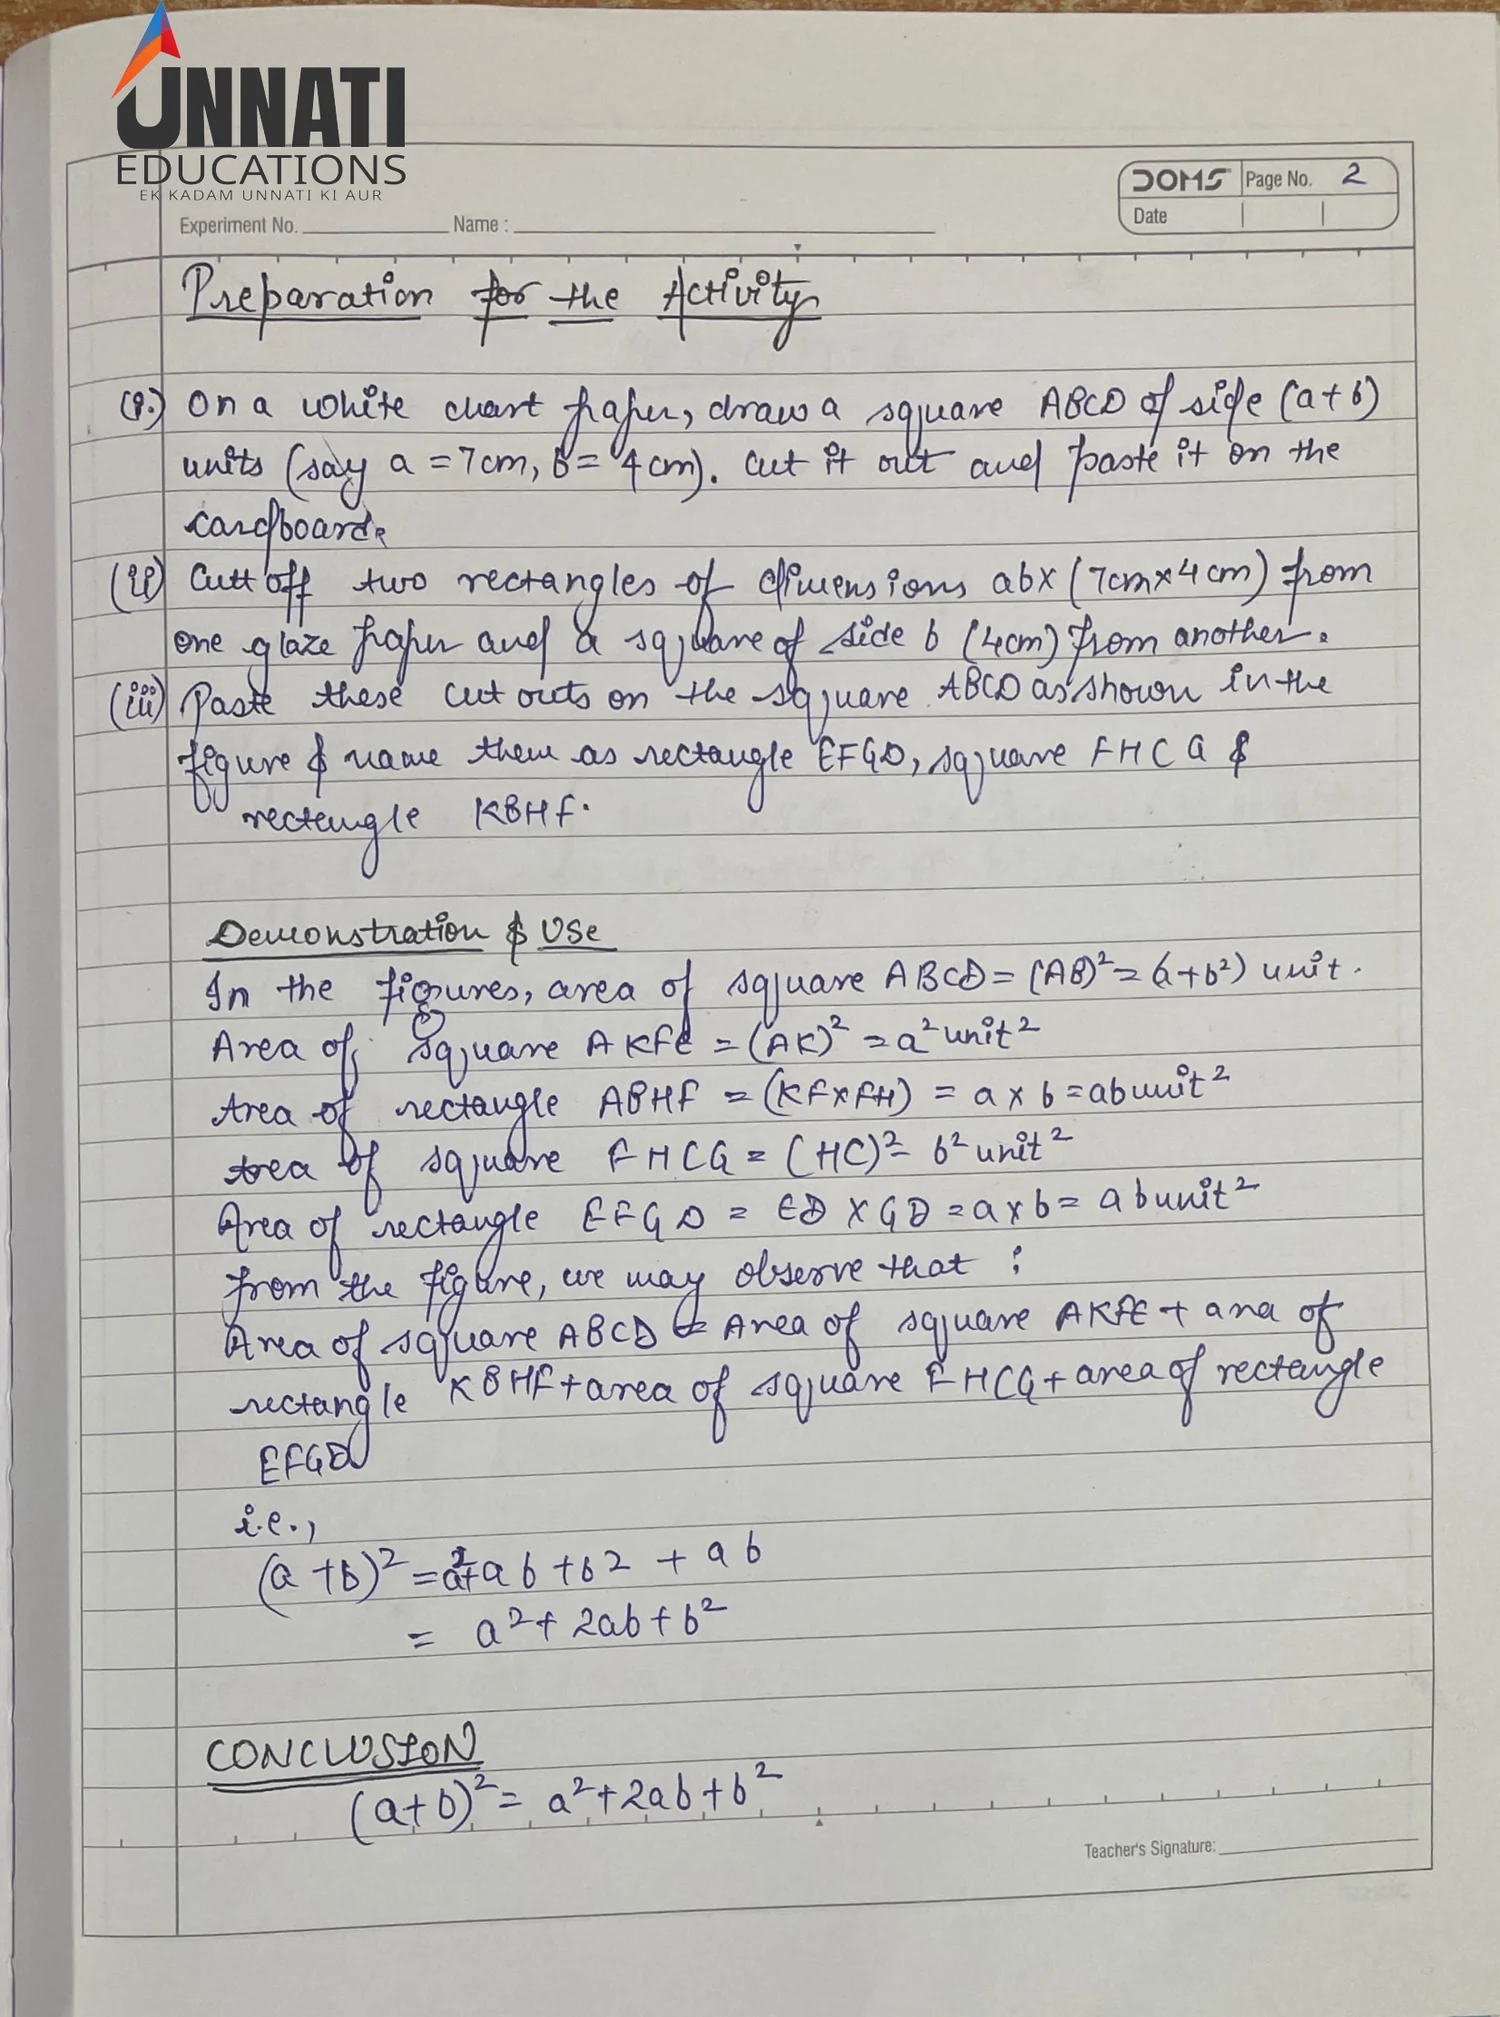 UNNATI
EDUCATIONS
EK KADAM UNNATI KI AUR
DOMS Page No. 2
Date
Experiment No. Name :
Preparation for the Activity
(i.) On a white chart paper, draw a square ABCD of side (a+b)
units (say a = 7cm, b = 4 cm). Cut it out and paste it on the
cardboard.
(ii) Cutt off two rectangles of dimensions abx (7cm×4cm) from
one glaze paper and a square of side b (4cm) from another.
(iii) Paste these cut outs on the square ABCD as shown in the
figure & name them as rectangle EFGD, square FHCG &
rectangle KBHF.
Demonstration & Use
In the figures, area of square ABCD = (AB)² = (a+b²) unit.
Area of square AKFE = (AK)² = a² unit²
Area of rectangle ABHF = (KF×FH) = a × b = ab unit²
Area of square FHCG = (HC)² = b² unit²
Area of rectangle EFGD = ED × GD = a×b = ab unit²
from the figure, we may observe that :
Area of square ABCD = Area of square AKFE + area of
rectangle KBHF + area of square FHCG + area of rectangle
EFGD
i.e.,
(a+b)² = a²+ab+b2 + ab
= a²+2ab+b²
CONCLUSION
(a+b)² = a²+2ab+b²
Teacher's Signature: